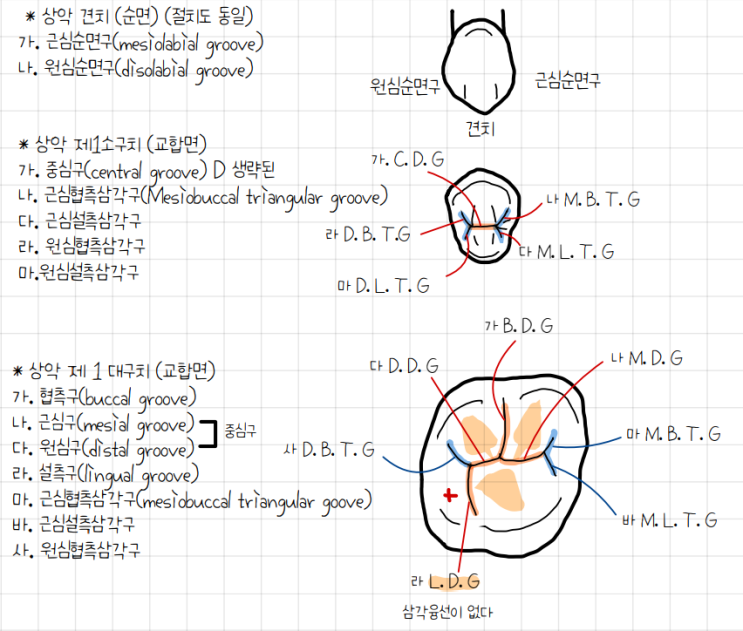 * 상악 견치 (순면) (절치도 동일)
가. 근심순면구(mesiolabial groove)
나. 원심순면구(disolabial groove)
원심순면구
근심순면구
견치
* 상악 제1소구치 (교합면)
가. 중심구(central groove) D 생략된
나. 근심협측삼각구(Mesiobuccal triangular groove)
다. 근심설측삼각구
라. 원심협측삼각구
마.원심설측삼각구
가. C. D. G
나 M. B. T. G
라 D. B. T.G
다 M. L. T. G
마 D. L. T. G
* 상악 제 1 대구치 (교합면)
가. 협측구(buccal groove)
나. 근심구(mesial groove)
다. 원심구(distal groove)
중심구
라. 설측구(lingual groove)
마. 근심협측삼각구(mesiobuccal triangular goove)
바. 근심설측삼각구
사. 원심협측삼각구
가 B. D. G
다 D. D. G
나 M. D. G
사 D. B. T. G
마 M. B. T. G
바 M. L. T. G
라 L. D. G
삼각융선이 없다